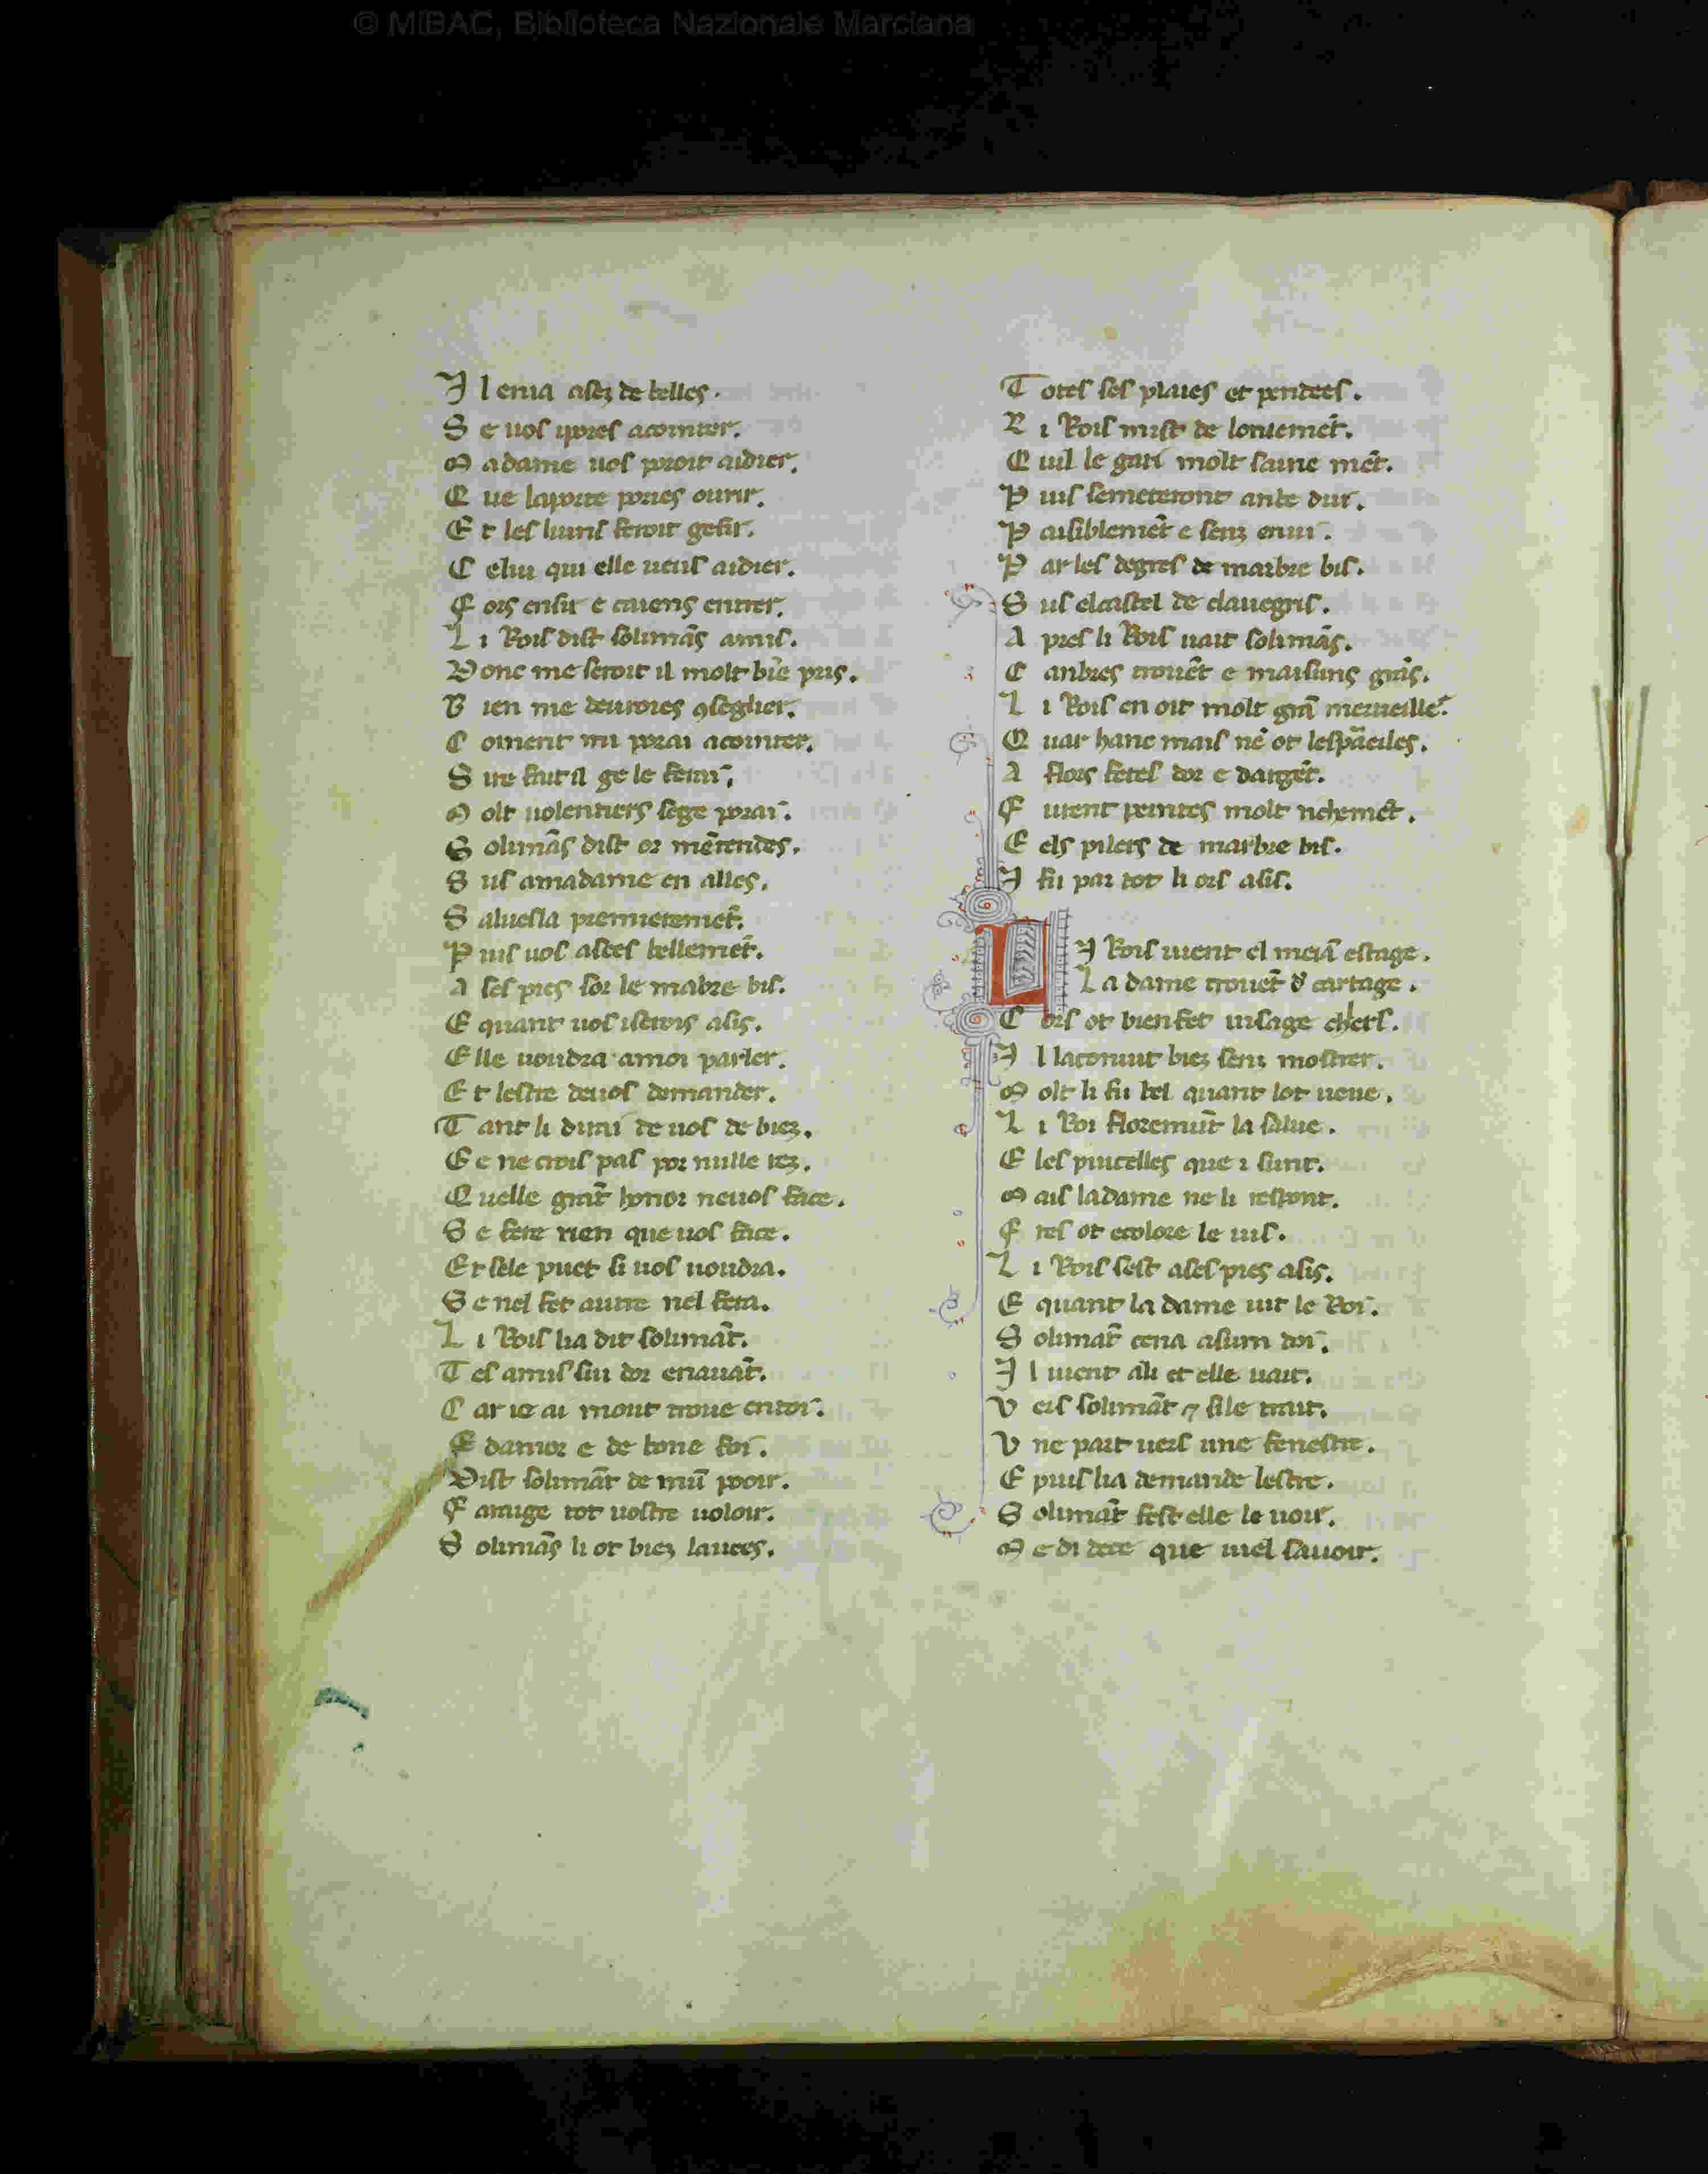 © MiBAC, Biblioteca Nazionale Marciana
I l enia asez de belles.
S e uos ipores acointer.
M adame uos poroit aidier.
Q ue laporte pories ourir.
E t les liuns feroit gesir.
C elui qui elle ueus aidier.
F ors ensir e caiens entrer.
L i Rois dist solimãs amis.
D onc me seroit il molt biẽ pris.
B ien me deuroies ꝯseglier.
C oment mi porai acointer.
S ire fait il ge le ferai.
M olt uolentiers sege porai.
S olimãs dist or mẽtendes.
S us amadame en alles.
S aluesla premieremẽt.
P uis uos asees bellemẽt.
A ses pies sor le mabre bis.
E quant uos iserois asis.
E lle uoudra amoi parler.
E t lestre deuos demander.
T ant li dirai de uos de biez.
G e ne crois pas por nulle rez.
Q uelle grãt honor neuos face.
S e fere rien que uos face.
Et sele puet si uos uoudra.
S e nel fet autre nel fera.
L i Rois lia dit solimãt.
T es amis sui dor enauãt.
C ar ie ai mout troue entoi.
E damor e de bone foi.
Dist solimãt de mũ pooir.
F araige tot uostre uoloir.
S olimãs li ot biez lauees.
T otes ses plaies et pendees.
E i Rois mist de lonuemẽt.
Q uil le gari molt saine mẽt.
P uis semeteront anbe dui.
P aisiblemẽt e senz enui.
P ar les degres de marbre bis.
S us elcastel de clauegris.
A pres li Rois uait solimãs.
C anbres trouẽt e maisuns grãs.
L i Rois en oit molt grã merueille.
Q uar hanc mais nẽ ot lespãeiles.
A flors fetes dor e dargẽt.
F urent peintes molt richemẽt.
E els pilers de marbre bis.
I fu par tot li ors asis.
L I Rois uient el meiã estage.
L a dame trouẽt d' cartage.
C ors ot bienfet uisage chers.
I l laconuit biez senz mostrer.
M olt li fu bel quant lot ueue.
L i Roi floremũt la salue.
E les pucelles que i sunt.
M ais ladame ne li respont.
F res ot ecolore le uis.
L i Rois sest ases pres asis.
E quant la dame uit le Roi.
S olimãt cena asum doi.
I l uient ali et elle uait.
V eis solimãt ⁊ sile trait.
V ne part uers une fenestre.
E puis lia demande lestre.
S olimãt fest elle le uoir.
M e di dece que uiel sauoir.